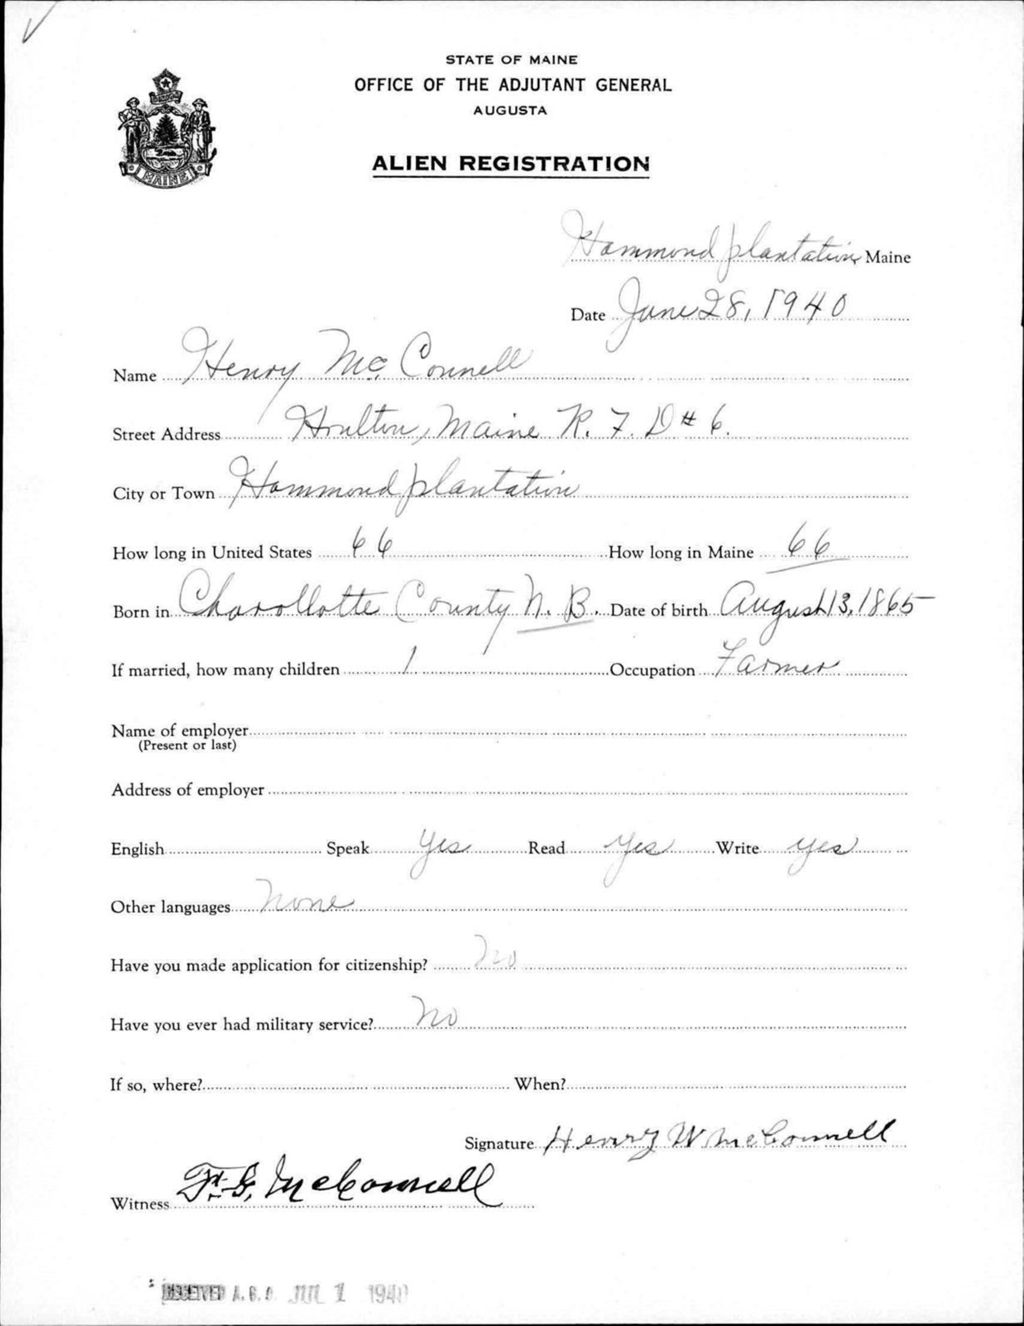 STATE OF MAINE
OFFICE OF THE ADJUTANT GENERAL
AUGUSTA
MAINE
ALIEN REGISTRATION
Hammond plantation, Maine
Date June 28, 1940
Name Henry Mc Connell
Street Address Houlton, Maine R. F. D # 6.
City or Town Hammond plantation
How long in United States 66 How long in Maine 66
Born in Charollotte County N. B. Date of birth August 13, 1865
If married, how many children 1 Occupation Farmer
Name of employer
(Present or last)
Address of employer
English Speak Yes Read Yes Write yes
Other languages None
Have you made application for citizenship? No
Have you ever had military service? No
If so, where? When?
Signature Henry W McConnell
Witness F. G. McConnell
RECEIVED A. G. O. JUL 1 1940